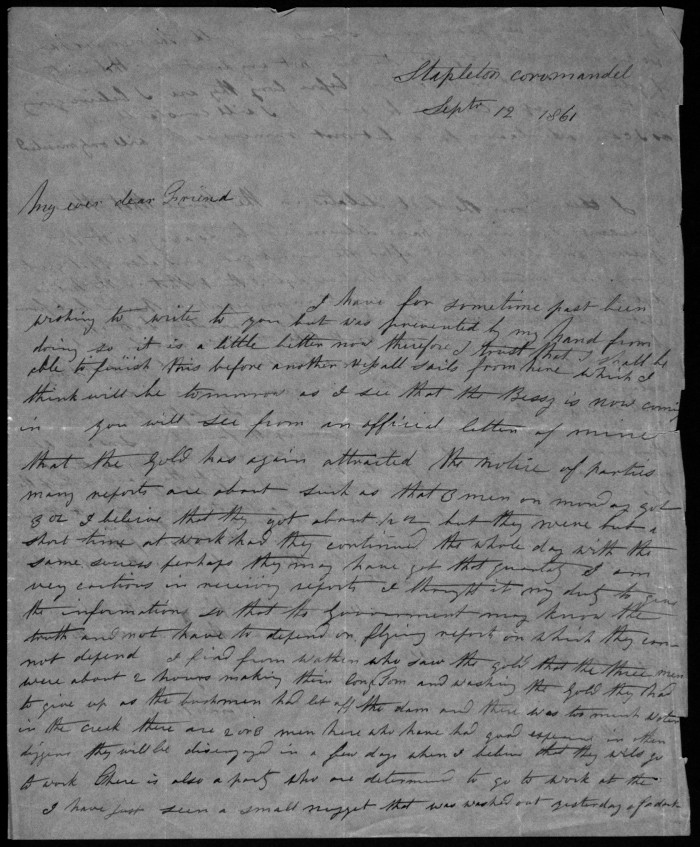 Stapleton Coromandel
Septr 12 1861
My ever dear Friend
I have for sometime past been
wishing to write to you but was prevented by my Hand from
doing so it is a little better now therefore I trust that I shall be
able to finish this before another vessell sails from here which I
think will be tomorrow as I see that the Bessy is now coming
in you will see from an official letter of mine
that the Gold has again attracted the notice of parties
many reports are about such as that 3 men on monday got
3 oz I believe that they got about 1/2 oz but they were but a
short time at work had they continued the whole day with the
same success perhaps they may have got that quantity I am
very cautious in receiving reports I thought it my duty to give
the information so that the Government may know the
truth and not have to depend on flying reports on which they can-
not depend I find from who saw the gold that the three men
were about 2 hours making their and washing the Gold they had
to give up as the bushmen had let off the dam and there was too much water
in the creek there are 2 or 3 men here who have had good in other
diggens they will be disengaged in a few days when I believe that they will go
to work There is also a party who are determined to go to work at the
I have just seen a small nugget that was washed out yesterday of a dark